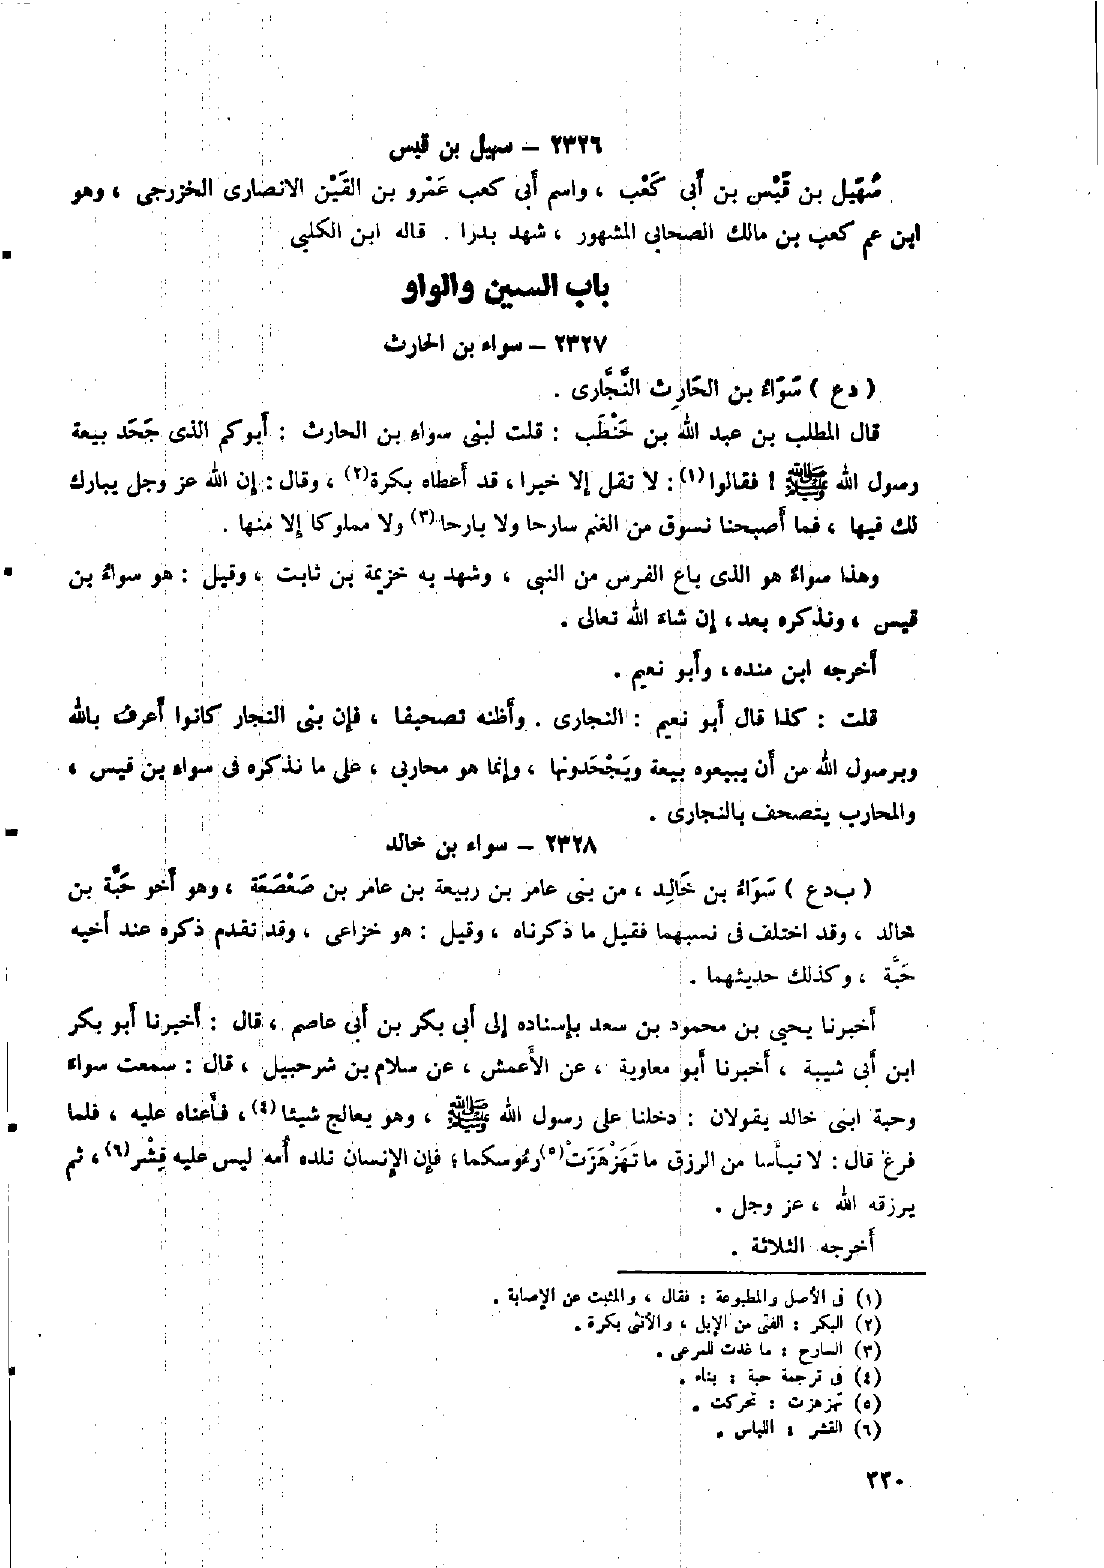 ٢٣٢٦ – سهيل بن قيس
سُهَيل بن قَيْس بن أبى كَعْب ، واسم أبى كعب عَمْرو بن القَيْن الانصارى الخزرجى ، وهو
ابن عم كعب بن مالك الصحابى المشهور ، شهد بدرا . قاله ابن الكلبى
باب السين والواو
٢٣٢٧ – سواء بن الحارث
( دع ) سَوَاءُ بن الحَارِث النَّجَّارى .
قال المطلب بن عبد الله بن حَنْطَب : قلت لبنى سواء بن الحارث : أبوكم الذى جَحَد بيعة
رسول الله ﷺ ! فقالوا(١) : لا تقل إلا خيرا ، قد أعطاه بكرة(٢) ، وقال : إن الله عز وجل يبارك
لك فيها ، فما أصبحنا نسوق من الغنم سارحا ولا بارحا(٣) ولا مملوكا إلا منها .
وهذا سواءُ هو الذى باع الفرس من النبى ، وشهد به خزيمة بن ثابت ، وقيل : هو سواءُ بن
قيس ، ونذكره بعد ، إن شاءَ الله تعالى .
أخرجه ابن منده ، وأبو نعيم .
قلت : كذا قال أبو نعيم : النجارى . وأظنه تصحيفا ، فإن بنى النجار كانوا أعرف بالله
وبرصول الله من أن يبيعوه بيعة ويَجْحَدونها ، وإنما هو محاربى ، على ما نذكره فى سواء بن قيس ،
والمحارب يتصحف بالنجارى .
٢٣٢٨ – سواء بن خالد
( ب دع ) سَوَاءُ بن خَالِد ، من بنى عامر بن ربيعة بن عامر بن صَعْصَعَة ، وهو أخو حَبَّة بن
خالد ، وقد اختلف فى نسبهما فقيل ما ذكرناه ، وقيل : هو خزاعى ، وقد تقدم ذكره عند أخيه
حَبَّة ، وكذلك حديثهما .
أخبرنا يحيى بن محمود بن سعد بإسناده إلى أبى بكر بن أبى عاصم ، قال : أخبرنا أبو بكر
ابن أبى شيبة ، أخبرنا أبو معاوية ، عن الأعمش ، عن سلام بن شرحبيل ، قال : سمعت سواءَ
وحبة ابنى خالد يقولان : دخلنا على رسول الله ﷺ ، وهو يعالج شيئا(٤) ، فأعناه عليه ، فلما
فرغ قال : لا تيأسا من الرزق ما تَهَزْهَزَتْ(٥) رءُوسكما ؛ فإن الإنسان تلده أمه ليس عليه قِشْر(٦) ، ثم
يرزقه الله ، عز وجل .
أخرجه الثلاثة .
(١) فى الأصل والمطبوعة : فقال ، والمثبت عن الإصابة .
(٢) البكر : الفتى من الإبل ، والأنثى بكرة .
(٣) السارح : ما غدت للمرعى .
(٤) فى ترجمة حبة : بناء .
(٥) تهزهزت : تحركت .
(٦) القشر : اللباس .
٢٣٠